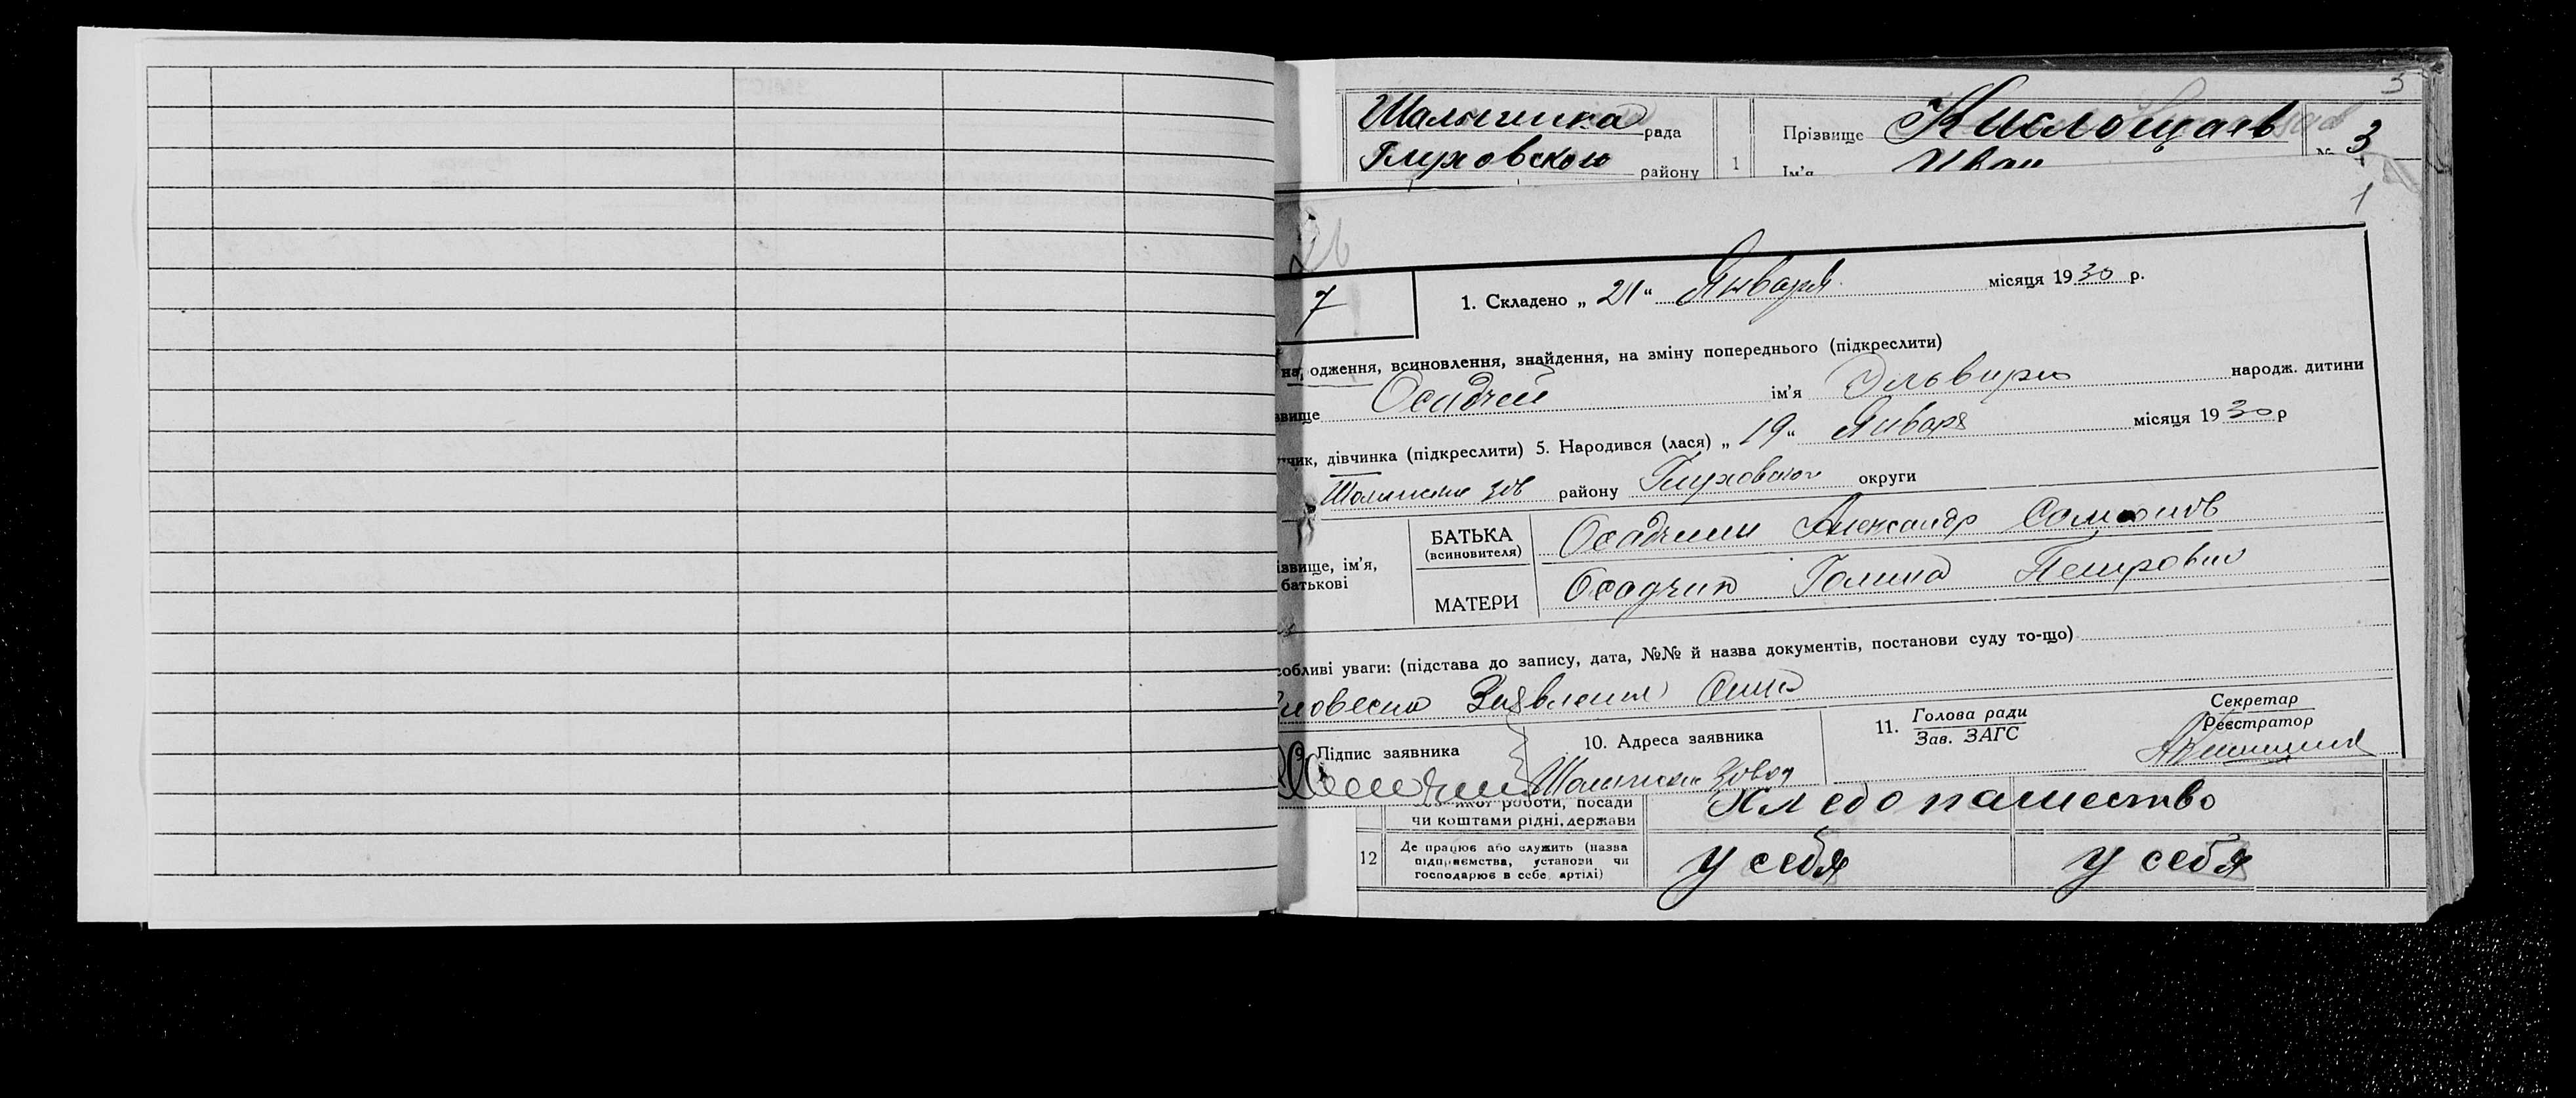 3
Шалыгинка рада
Глуховского району
1
Прізвище Кислощаев
Ім'я Иван
№ 3
1
26
7
1. Складено „ 21 “ Января місяця 1930 р.
на, одження, всиновлення, знайдення, на зміну попереднього (підкреслити)
звище Осадчей ім'я Эльвира народж. дитини
чик, дівчинка (підкреслити) 5. Народився (лася) „ 19 “ Января місяця 1930 р
зов району Глуховского округи
ізвище, ім'я,
батькові
БАТЬКА
(всиновителя)
Осадчий Александр
МАТЕРИ
Осадчия Галина Петровна
собливі уваги: (підстава до запису, дата, №№ й назва документів, постанови суду то-що)
ловесно Заявления Отца
9 Підпис заявника
10. Адреса заявника
Завод
11. Голова ради
Зав. ЗАГС
Секретар
Реєстратор
якої роботи, посади
чи коштами рідні, держави
Хледопашество
12
Де працює або служить (назва
підприємства, установи чи
господарює в себе, артілі)
у себя
у себя